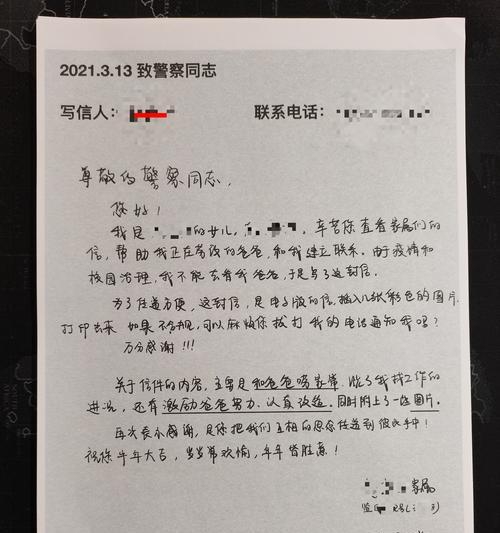 2021.3.13 致警察同志
写信人： 联系电话：
尊敬的警察同志，
您好！
我是 的女儿， ，辛苦您查看家属们的
信，帮助我正在劳改的爸爸，和我建立联系。由于疫情和
校园治理，我不能去看我爸爸，于是写了这封信。
为了住递方便，这封信，是电子版的信，插入几张彩色的图片
打印出来 如果不合规，可以麻烦您拨打我的电话通知我吗？
万分感谢！！！
关于信件的内容，主要是和爸爸唠家常，临了我找工作的
进况，还有激励爸爸努力、认真改造。同时附上了一些图片。
再次表示感谢，是你把我们互相的思念住递到彼此手中！
祝您牛年大吉，岁岁常欢愉，年年皆胜意！
家属